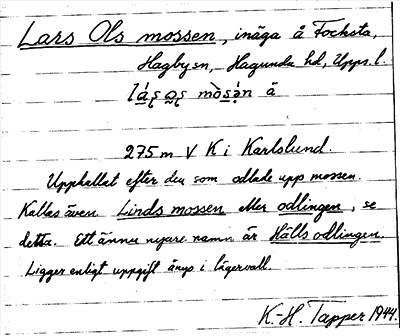 Lars Ols mossen, inäga å Focksta,
Hagby sn, Hagunda hd, Upps. l.
mò̀sən ä
275 m V K i Karlslund
Upphallat efter den som odlade upp mossen.
Kallas även Linds mossen eller odlingen, se
detta. Ett ännu nyare namn är Hälls odlingen.
Ligger enligt uppgift ånyo i lägervall.
K.-H. Tapper 1944.